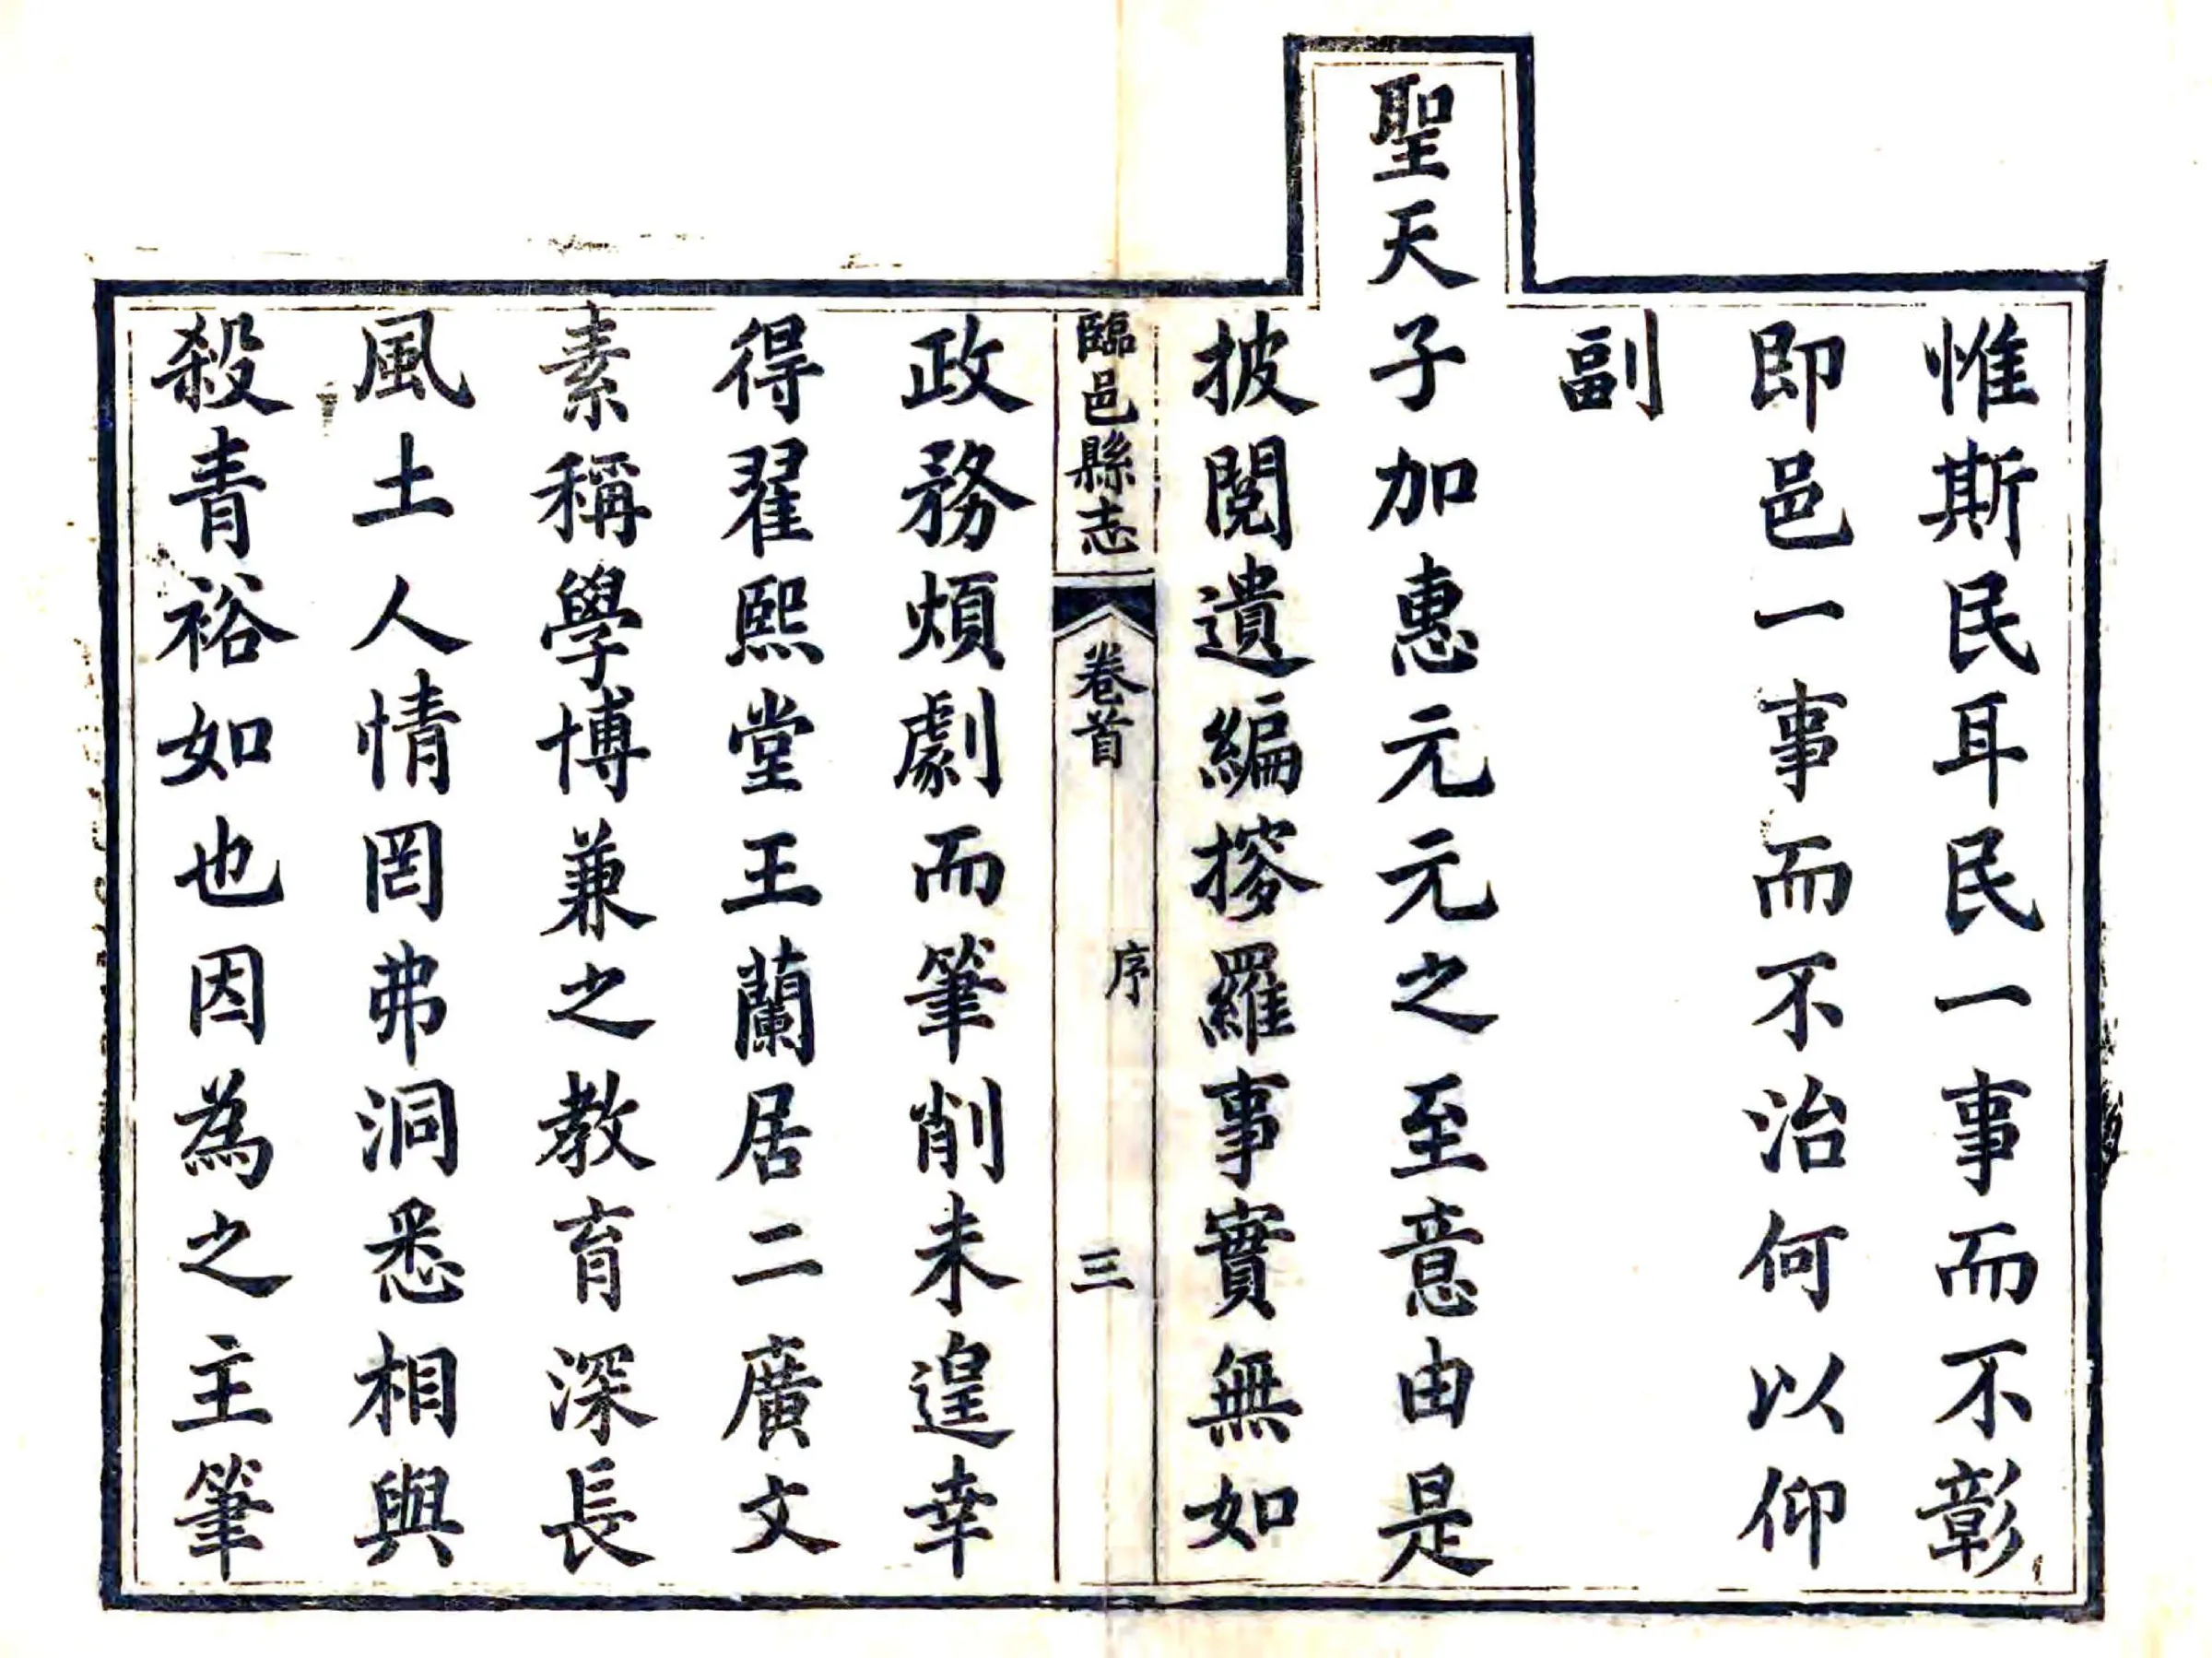 惟斯民耳民一事而不彰
即邑一事而不治何以仰
副
聖天子加惠元元之至意由是
披閱遺編摉羅事實無如
臨邑縣志 卷首 序 三
政務煩劇而筆削未遑幸
得翟熙堂王蘭居二廣文
素稱學博兼之教育深長
風土人情罔弗洞悉相與
殺青裕如也因為之主筆